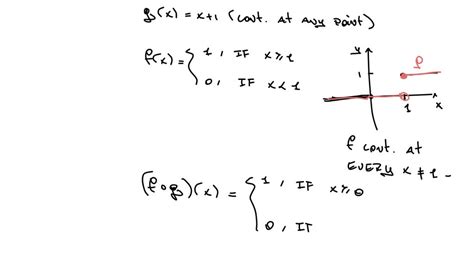 g(x) = x+1 (cont. at any point)
f(x) = { 1, IF x ≥ 1
0, IF x < 1
y
f
1
1
x
f cont. at
EVERY x ≠ 1 -
(f∘g)(x) = { 1, IF x ≥ 0
0, IF